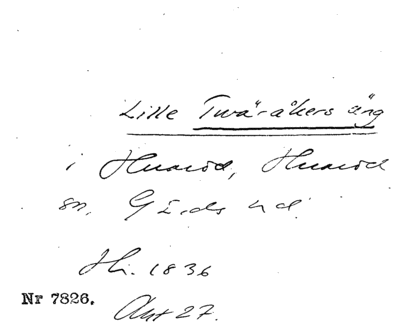 Lille Twär-åkers äng
i Huaröd, Huaröd
sn, Gärds hd.
Hi. 1836
Nr 7826.
Akt 27.